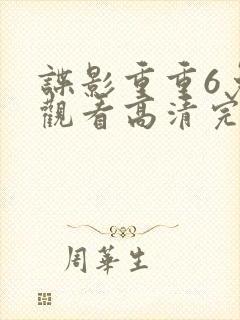 諜影重重6
觀看高清完
周華生